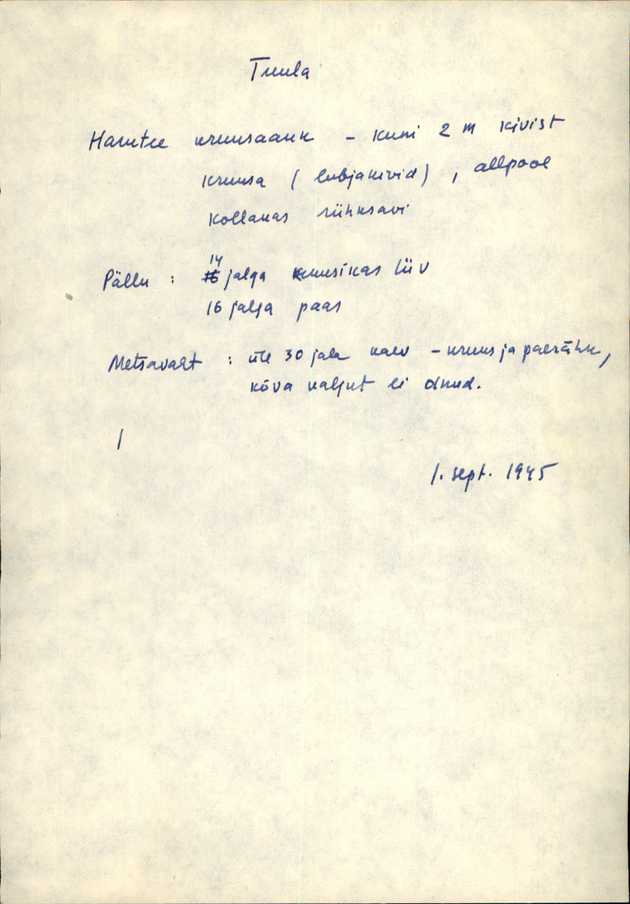 Tuula
Harutee kruusaauk – kuni 2 m kivist
kruusa (lubjakivid), allpool
kollakas rühksavi
Pällu : 14 jalga kruusikas liiv
16 jalga paas
Metsavaht : üle 30 jala kaev – kruus ja paerähk,
kõva kaljut ei olnud.
1. sept. 1945